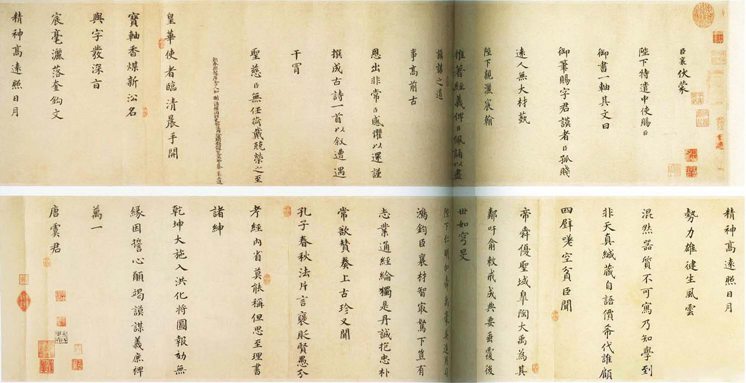 臣襄伏蒙
陛下特遣中使賜臣
御書一軸其文曰
御筆賜字君謨者臣孤賤
遠人無大材藝
陛下親灑宸翰
推著經義俾臣佩誦以盡
謨謀之道
事高前古
恩出非常臣感懼以還謹
撰成古詩一首以叙遭遇
干冒
聖慈臣無任荷戴兢榮之至
皇華使者臨清晨手開
寶軸香煤新沿名
與字發深旨
宸毫灑落奎鈎文
精神高遠照日月
精神高遠照日月
勢力雄健生風雲
混然器質不可寫乃知學到
非天真緘藏自語價希代誰顧
四壁嗟空貧臣聞
帝舜優聖域皐陶大禹為其
鄰吁俞敕戒成典要垂覆後
世如穹旻
陛下仁明如帝舜豪英進用司
鴻鈞臣襄材智最駑下豈有
志業通經綸獨是丹誠抱忠朴
常欲贊奏上古珍又聞
孔子春秋法片言襃貶賢愚分
考經內省莫能稱但思至理書
諸紳
乾坤大施入洪化將圖報効無
緣因誓心願竭謨謀義庶裨
萬一
唐虞君